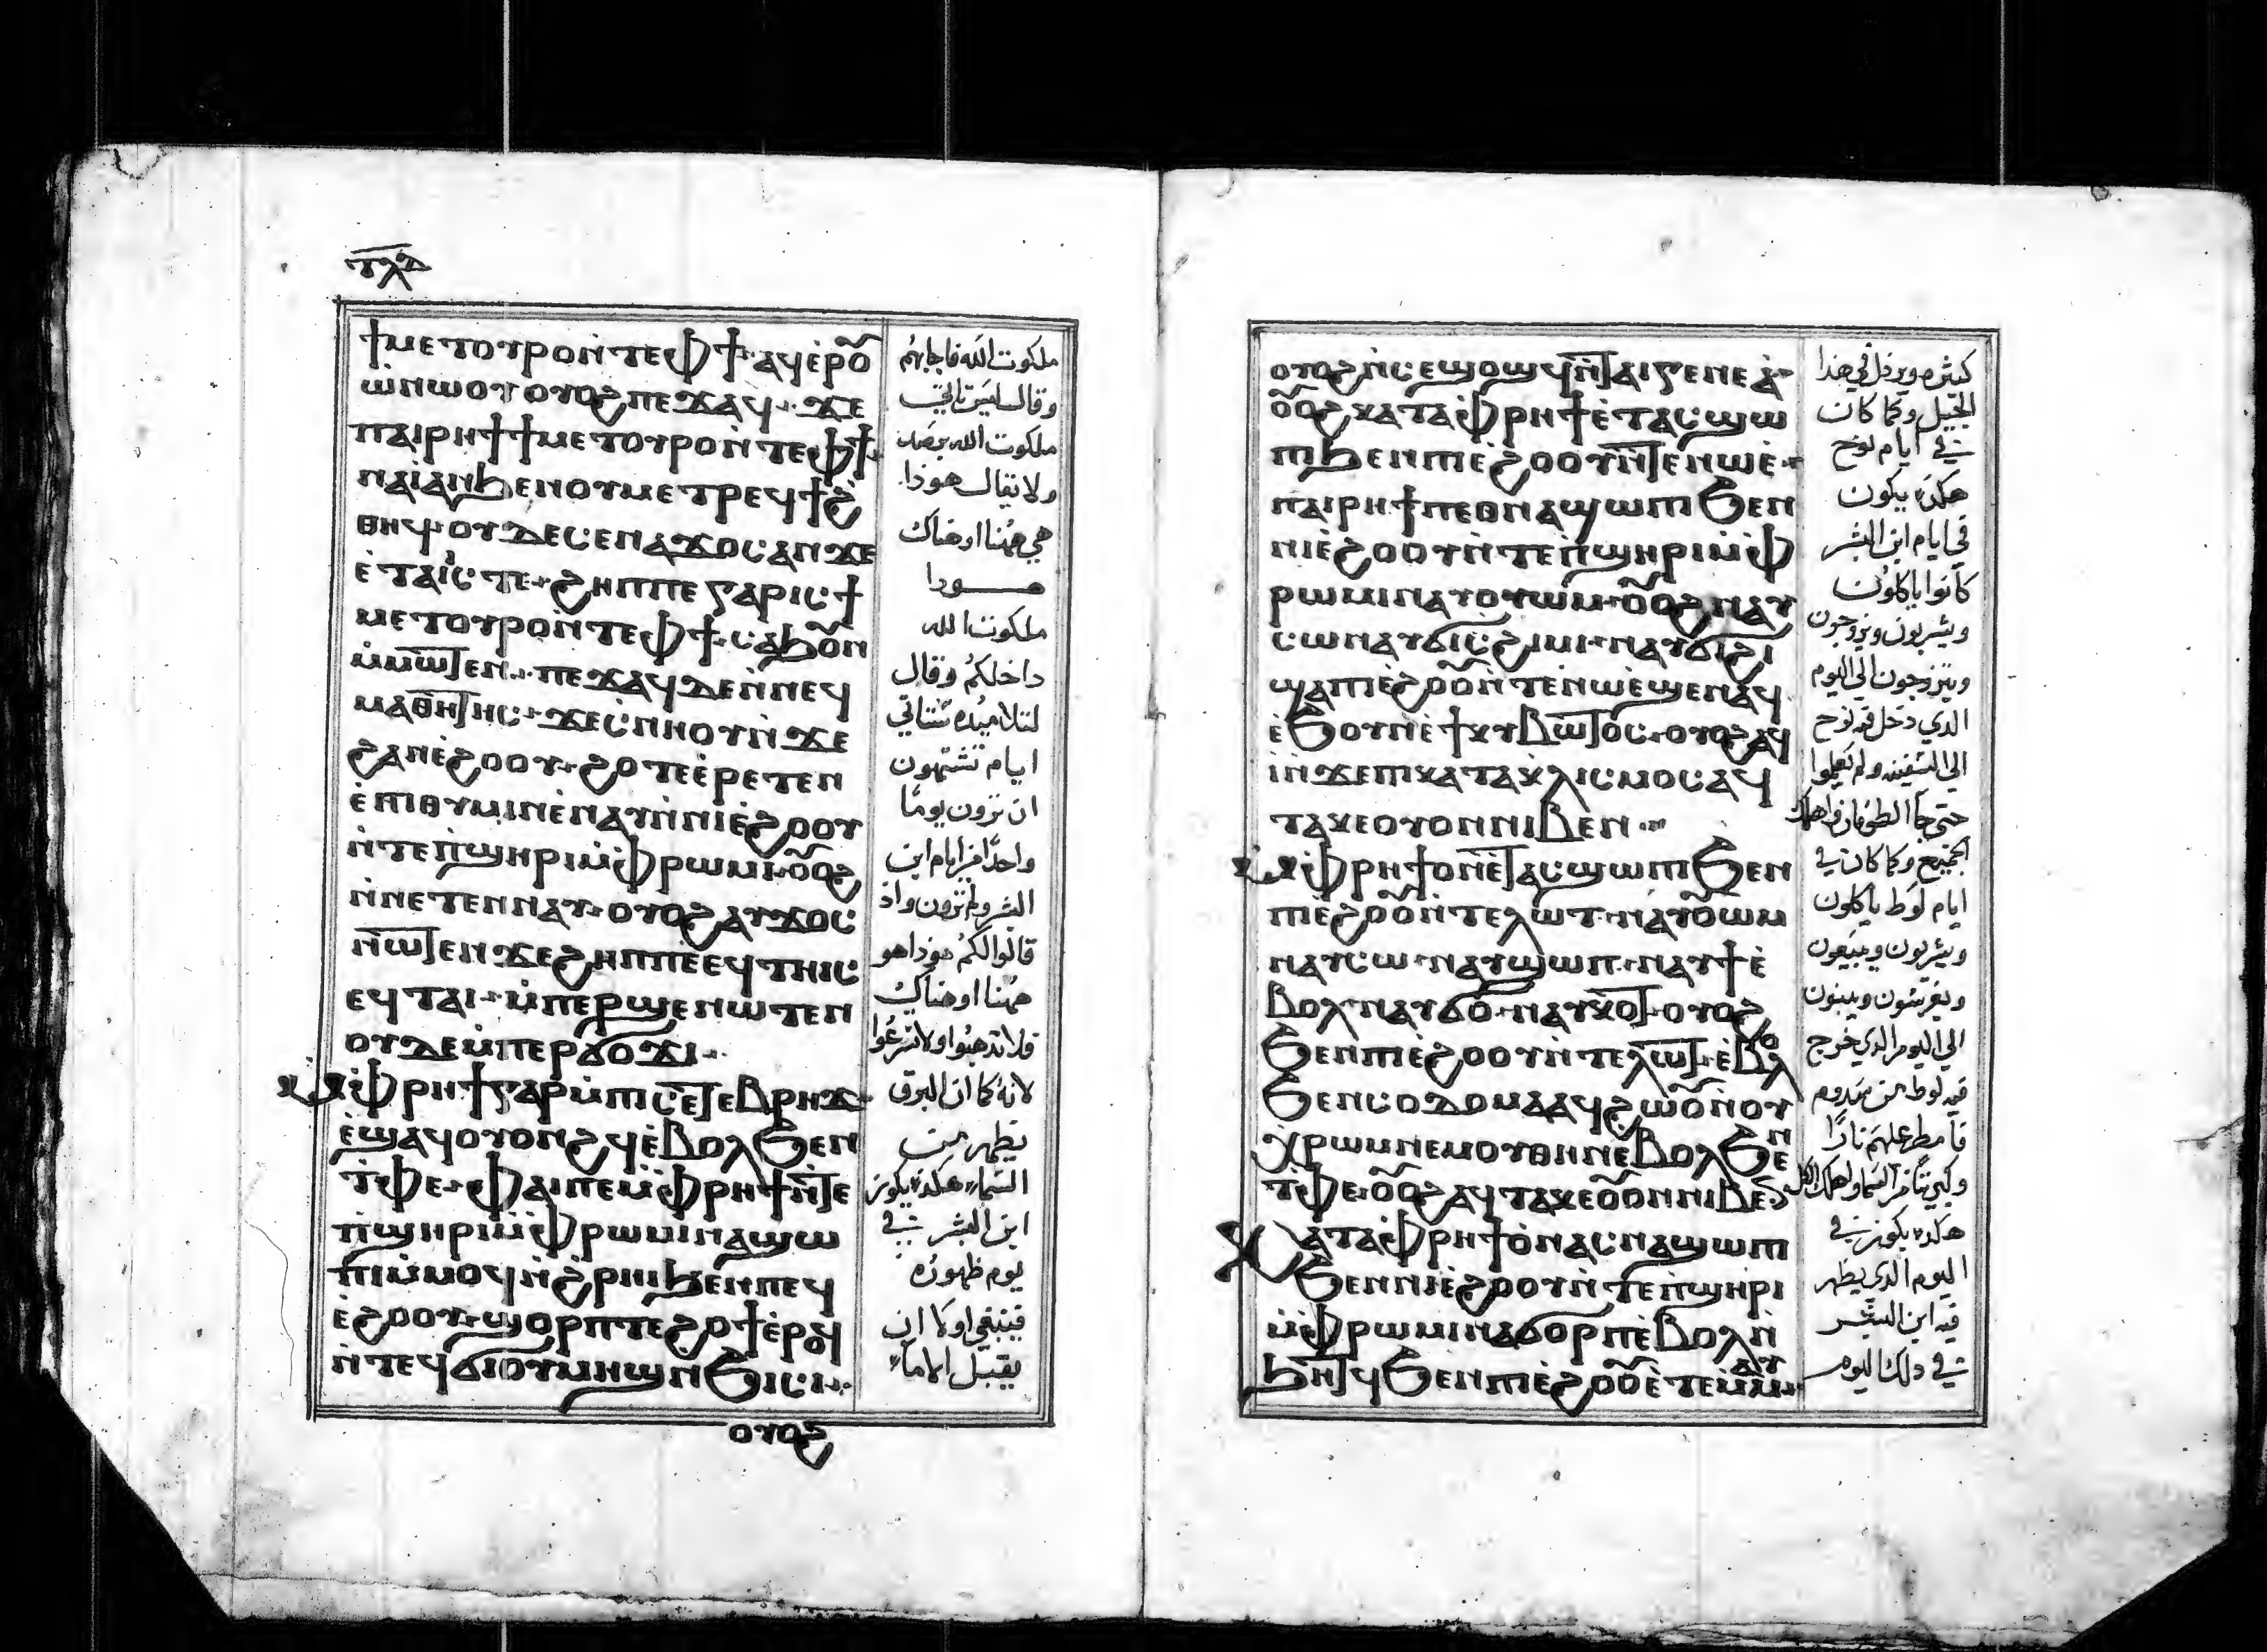 ⲧⲗⲇ
ϯⲙⲉⲧⲟⲩⲣⲟⲛ̀ⲧⲉⲫϯ·ⲁϥⲉ̀ⲣⲟ̅
ⲱ̀ⲛⲱⲟⲩⲟⲩⲟϩⲡⲉϫⲁϥ·ϫⲉ
ⲡⲁⲓⲣⲏϯϯⲙⲉⲧⲟⲩⲣⲟⲛ̀ⲧⲉⲫϯ·
ⲛⲁⲓ̀ⲁⲛϧⲉⲛⲟⲩⲙⲉⲧⲣⲉϥϯϩ̀
ⲑⲏϥⲟⲩⲇⲉⲥⲉⲛⲁϫⲟⲥⲁⲛϫⲉ
ⲙⲉⲧⲟⲩⲣⲟⲛ̀ⲧⲉⲫϯ·ⲥⲁϧⲟ̅ⲛ
ⲙ̀ⲙⲱⲧⲉⲛ·ⲡⲉϫⲁϥⲇⲉⲛ̀ⲛⲉϥ
ⲙⲁⲑⲏⲧⲏⲥ·ϫⲉⲥ̀ⲛⲏⲟⲩⲛ̀ϫⲉ
ϩⲁⲛⲉ̀ϩⲟⲟⲩ·ϩⲟⲧⲉⲉ̀ⲣⲉⲧⲉⲛ
ⲉ̀ⲡⲓⲑⲩⲙⲓⲛⲉ̀ⲛⲁⲩⲛ̀ⲛⲓⲉ̀ϩⲟⲟⲩ
ⲛ̀ⲧⲉⲡ̀ϣⲏⲣⲓⲙ̀ⲫⲣⲱⲙⲓ·ⲟ̅ⲟϩ
ⲛ̀ⲛⲉⲧⲉⲛⲛⲁⲩ·ⲟⲩⲟϩⲁⲩϫⲟⲥ
ⲛ̀ⲱⲧⲉⲛϫⲉϩⲏⲡⲡⲉⲉϥⲧⲏⲓⲥ
ⲉϥⲧⲁⲓ·ⲙ̀ⲡⲉⲣϣⲉⲛⲱⲧⲉⲛ
ⲟⲩⲇⲉⲙ̀ⲡⲉⲣϭⲟϫⲓ·
ⲙ̀ⲫⲣⲏϯⲅⲁⲣⲙ̀ⲡⲓⲥⲉⲧⲉⲃⲣⲏϫ
ⲉ̀ϣⲁϥⲟⲩⲟⲛϩϥⲉ̀ⲃⲟⲗϧⲉⲛ
ⲧ̀ⲫⲉ·ⲫⲁⲓⲡⲉⲙ̀ⲫⲣⲏϯⲛ̀ⲧⲉ
ⲡ̀ϣⲏⲣⲓⲙ̀ⲫⲣⲱⲙⲓⲛⲁϣⲱ
ⲡⲓⲙ̀ⲙⲟϥⲛ̀ϩⲣⲏⲓϧⲉⲛⲡⲉϥ
ⲉ̀ϩⲟⲟⲩ·ϣⲟⲣⲡⲧⲉϩⲟϯⲉ̀ⲣⲟϥ
ⲛ̀ⲧⲉϥϭⲓⲟⲩⲙⲏϣⲛ̀ϧⲓⲥⲓ·
ⲟⲩⲟϩ
ملكوت الله فاجابهم
وقال ليس تاتي
ملكوت الله برصد
ولا يقال هوذا
هي ههنا او هناك
هوذا
ملكوت الله
داخلكم وقال
لتلاميده ستاتي
ايام تشتهون
ان ترون يوما
واحدا من ايام ابن
البشر ولا ترون واذ
قالوا لكم هوذا هو
ههنا او هناك
فلا تذهبوا ولا تسرعوا
لانه كما ان البرق
يظهر من
السماء هكذا يكون
ابن البشر في
يوم ظهوره
فينبغي اولا ان
يقبل الاما
ⲟⲩⲟϩⲛ̀ⲥⲉϣⲟϣϥⲛ̀ⲧⲁⲓⲅⲉⲛⲉⲁ̀·
ⲟ̅ⲟϩⲕⲁⲧⲁⲫⲣⲏϯⲉ̀ⲧⲁⲥϣⲱ
ⲡⲓϧⲉⲛⲡⲓⲉ̀ϩⲟⲟⲩⲛ̀ⲧⲉⲛⲱⲉ̀·
ⲡⲁⲓⲣⲏϯⲡⲉⲑⲛⲁϣⲱⲡⲓϧⲉⲛ
ⲛⲓⲉ̀ϩⲟⲟⲩⲛ̀ⲧⲉⲡ̀ϣⲏⲣⲓⲙ̀ⲫ
ⲣⲱⲙⲓⲛⲁⲩⲟⲩⲱⲙ·ⲟ̅ⲟϩⲛⲁⲩ
ⲥⲱⲛⲁⲩϭⲓⲥϩⲓⲙⲓ·ⲛⲁⲩϭⲓϩⲓ
ϣⲁⲡⲓⲉ̀ϩⲟⲟ̅ⲛ̀ⲧⲉⲛⲱⲉ̀ϣⲉⲛⲁϥ
ⲉ̀ϧⲟⲩⲛⲉ̀ϯⲕⲩⲃⲱⲧⲟⲥ·ⲟⲩⲟϩⲁϥ
ⲓ̀ⲛ̀ϫⲉⲡⲓⲕⲁⲧⲁⲕ̀ⲗⲓⲥⲙⲟⲥⲁϥ
ⲧⲁⲕⲉⲟⲩⲟⲛⲛⲓⲃⲉⲛ·
ⲙ̀ⲫⲣⲏϯⲟⲛⲉ̀ⲧⲁⲥϣⲱⲡⲓϧⲉⲛ
ⲡⲓⲉ̀ϩⲟⲟ̅ⲛ̀ⲧⲉⲗⲱⲧ·ⲛⲁⲩⲟ̅ⲱⲙ
ⲛⲁⲩⲥⲱ·ⲛⲁⲩϣⲱⲡ·ⲛⲁⲩϯⲉ̀
ⲃⲟⲗ·ⲛⲁⲩϭⲟ·ⲛⲁⲩⲕⲟⲧ·ⲟⲩⲟϩ
ϧⲉⲛⲡⲓⲉ̀ϩⲟⲟⲩⲛ̀ⲧⲉⲗⲱⲧ·ⲉ̀ⲃⲟⲗ
ϧⲉⲛⲥⲟⲇⲟⲙⲁⲁϥϩⲱⲟ̅ⲛ̀ⲟⲩ
ⲭ̀ⲣⲱⲙⲛⲉⲙⲟⲩⲑⲏⲛⲉ̀ⲃⲟⲗϧⲉⲛ
ⲧ̀ⲫⲉ·ⲟ̅ⲟϩⲁϥⲧⲁⲕⲉⲟ̅ⲟⲛⲛⲓⲃⲉⲛ
ⲕⲁⲧⲁⲫⲣⲏϯⲟ̀ⲛⲁⲥⲛⲁϣⲱⲡⲓ
ϧⲉⲛⲛⲓⲉ̀ϩⲟⲟⲩⲛ̀ⲧⲉⲡ̀ϣⲏⲣⲓ
ⲙ̀ⲫⲣⲱⲙⲓⲛⲁϭⲟⲣⲡⲉ̀ⲃⲟⲗⲛ̀
ϧⲏⲧϥϧⲉⲛⲡⲓⲉ̀ϩⲟⲟ̅ⲉ̀ⲧⲉⲙ̀ⲙⲁⲩ·
كثيره ويرذل في هذا
الجيل وكما كان
في ايام نوح
هكذه يكون
في ايام ابن البشر
كانوا ياكلون
ويشربون ويزوجون
ويتزوجون الي اليوم
الذي دخل فيه نوح
الي السفينه ولم يعلموا
حتي جا الطوفان واهلك
الجميع وكما كان في
ايام لوط ياكلون
ويشربون ويبيعون
ويغرسون ويبنون
الي اليوم الذي خرج
فيه لوط من سدوم
فامطر عليهم نارا
وكبريتا من السما واهلك الكل
هكذه يكون في
اليوم الذي يظهر
فيه ابن البشر
في ذلك اليوم